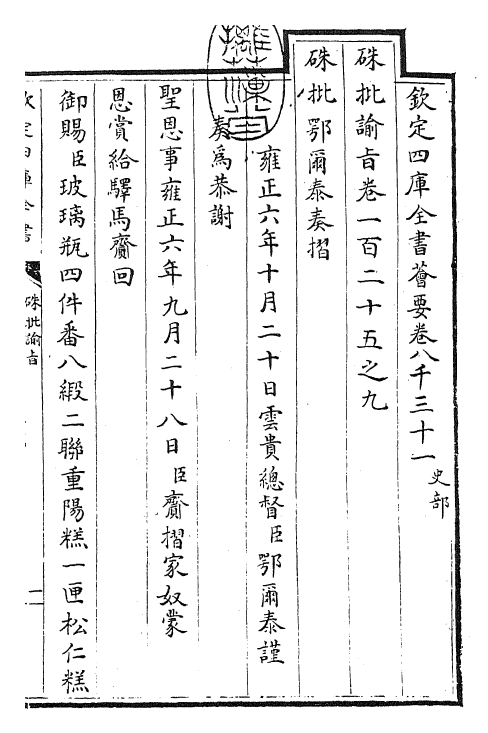 欽定四庫全書薈要卷八千三十一 史部
硃批諭旨卷一百二十五之九
硃批鄂爾泰奏摺
雍正六年十月二十日雲貴總督臣鄂爾泰謹
奏為恭謝
聖恩事雍正六年九月二十八日臣齎摺家奴蒙
恩賞給驛馬齎回
御賜臣玻璃瓶四件番八緞二聯重陽糕一匣松仁糕
欽定四庫全書
硃批諭旨